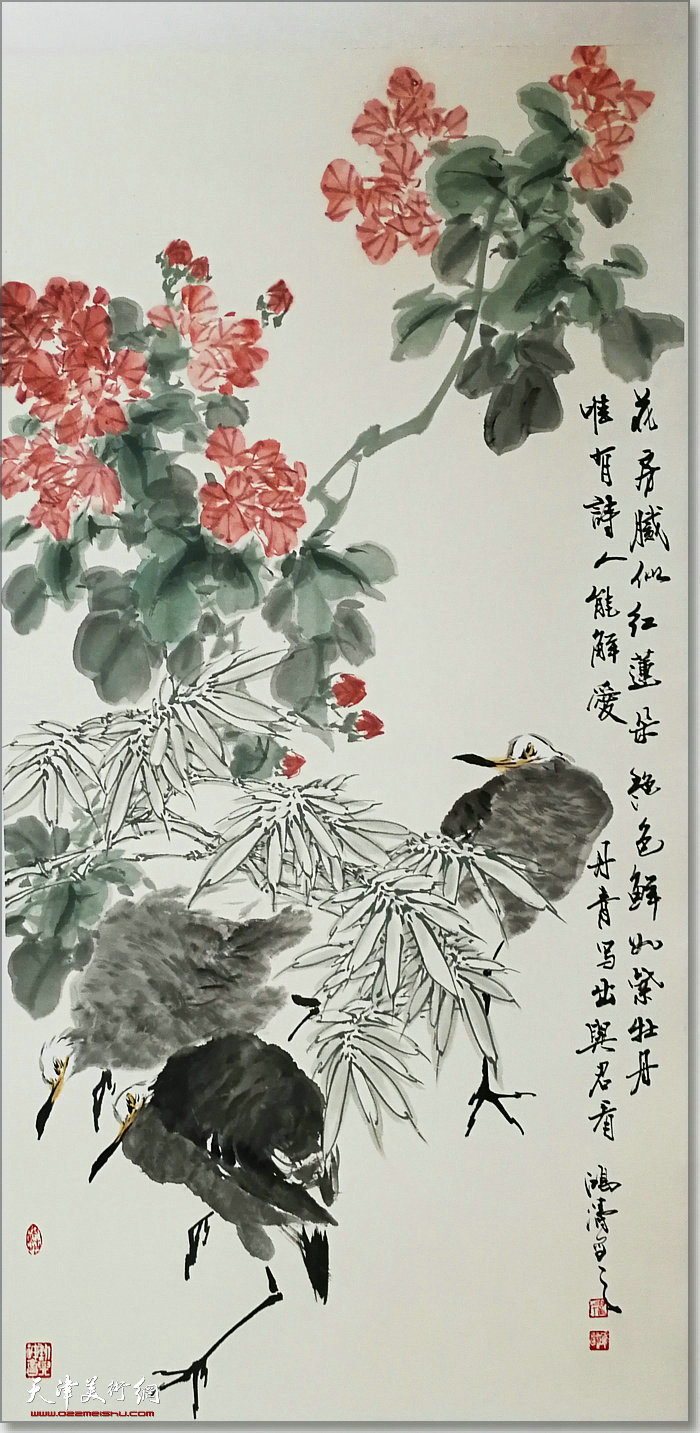 花房腻似红蓮朵 艳色鲜如紫牡丹
唯有詩人能解愛 丹青写出與君看
鴻濤写之
天津美術網
www.022meishu.com